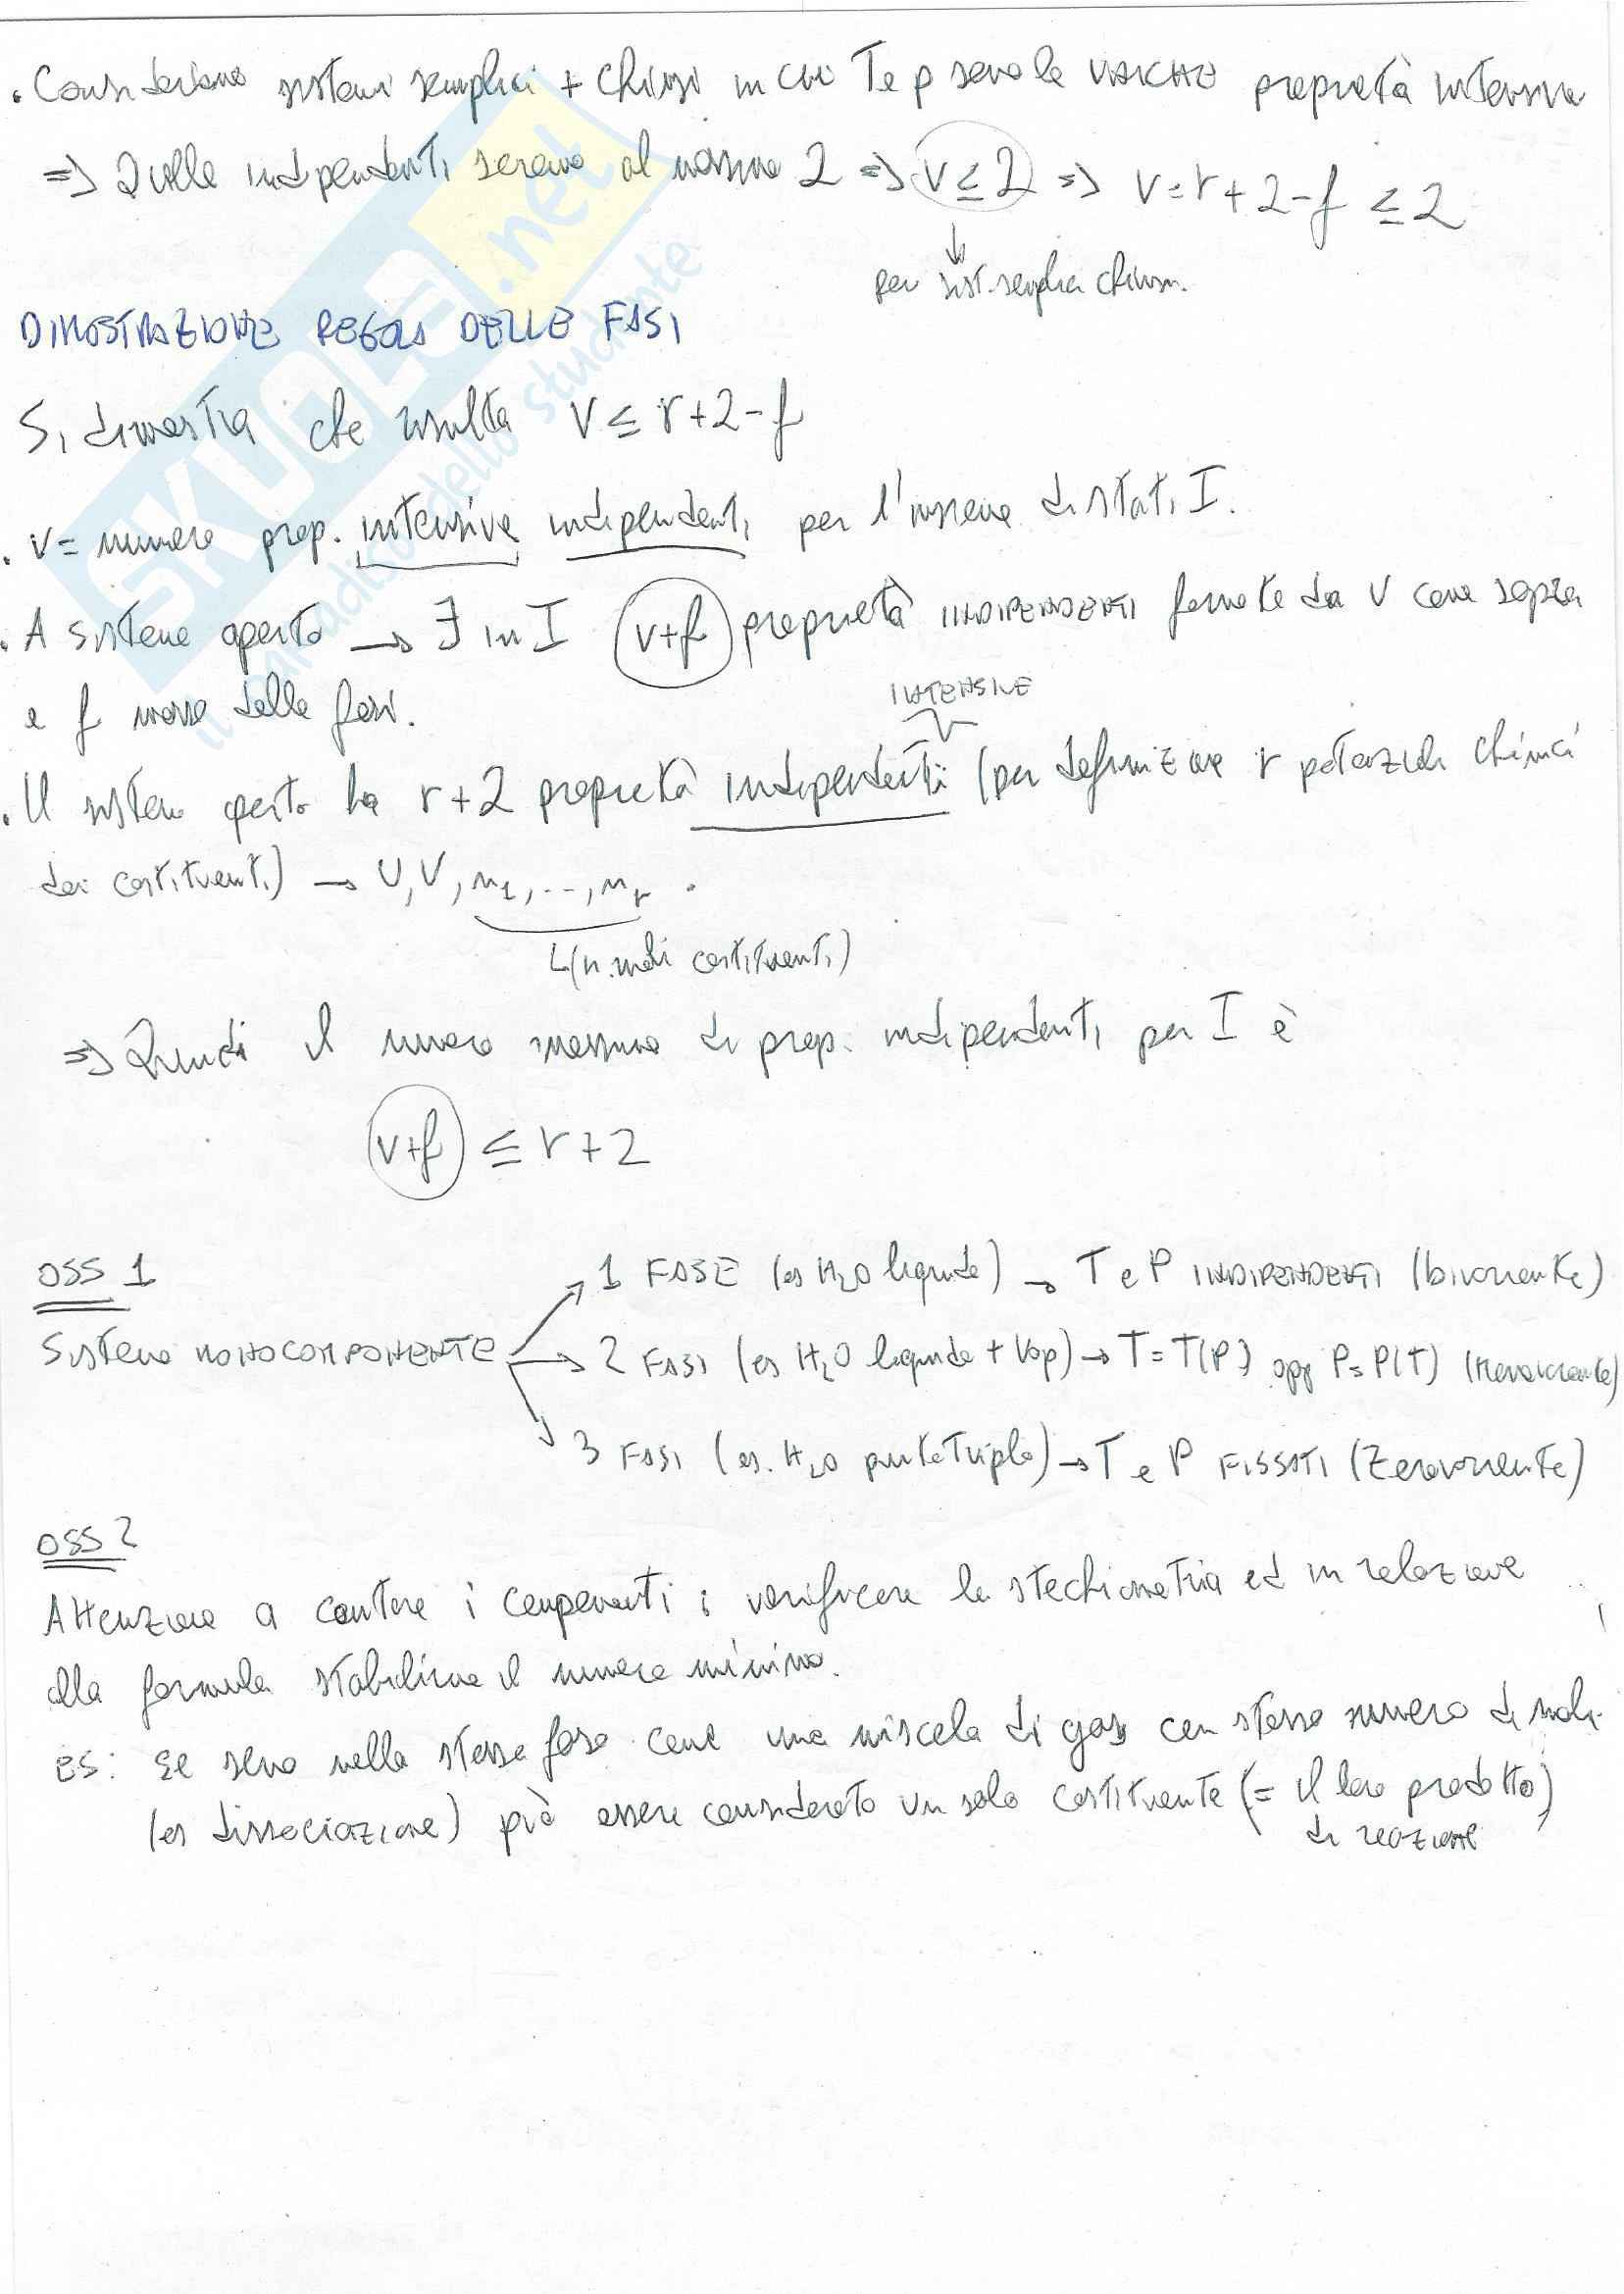 . Consideriamo sistemi semplici + chiusi in cui T e p sono le UNICHE proprietà intensive
=> Quelle indipendenti saranno al massimo 2 => v ≤ 2 => v = r + 2 - f ≤ 2
↓
per sist. semplici chiusi.
DIMOSTRAZIONE REGOLA DELLE FASI
Si dimostra che risulta v ≤ r + 2 - f
. v = numero prop. intensive indipendenti per l'insieme di stati I.
. A sistema aperto → ∃ in I (v+f) proprietà INDIPENDENTI formate da v come sopra
e f masse delle fasi.
INTENSIVE
. Il sistema aperto ha r+2 proprietà indipendenti (per definizione r potenziali chimici
dei costituenti) → U, V, n1, ..., nr .
↳ (n. moli costituenti)
=> Quindi il numero massimo di prop. indipendenti per I è
(v+f) ≤ r + 2
OSS 1
1 FASE (es H2O liquida) → T e P INDIPENDENTI (bivariante)
Sistema MONOCOMPONENTE → 2 FASI (es H2O liquida + vap) → T = T(P) opp P = P(T) (monovariante)
3 FASI (es. H2O punto triplo) → T e P FISSATI (zerovariante)
OSS 2
Attenzione a contare i componenti : verificare la stechiometria ed in relazione
alla formula stabilirne il numero minimo.
ES: se sono nella stessa fase come una miscela di gas con stesso numero di moli
(es dissociazione) può essere considerato un solo costituente (= il loro prodotto)
di reazione
SKUOLA.net
il paradiso dello studente